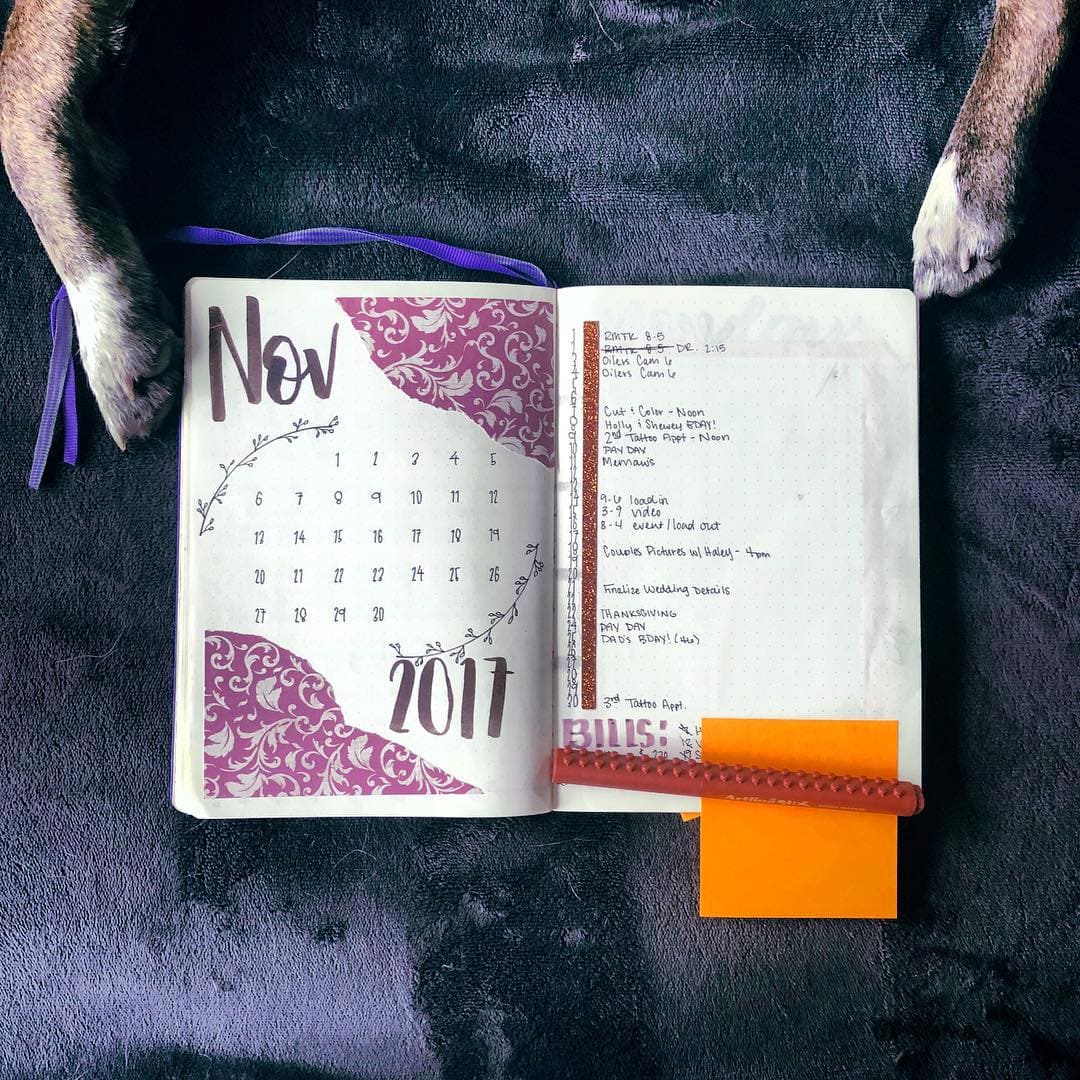 Nov
1 2 3 4 5
6 7 8 9 10 11 12
13 14 15 16 17 18 19
20 21 22 23 24 25 26
27 28 29 30
2017
1 RMTK 8-5
2 RMTK 8-5 DR. 2:15
3 Oilers Cam 6
4 Oilers Cam 6
5
6
7 Cut & Color - Noon
8 Holly & Shewey BDAY!
9 2nd Tattoo Appt - Noon
10 PAY DAY
11 Memaw's
12
13
14 9-6 load in
15 3-9 video
16 8-4 event/load out
17
18 Couples Pictures w/ Haley - 4pm
19
20
21 Finalize Wedding Details
22
23 THANKSGIVING
24 PAY DAY
25 DAD'S BDAY! (46)
26
27
28
29
30 3rd Tattoo Appt.
BILLS: